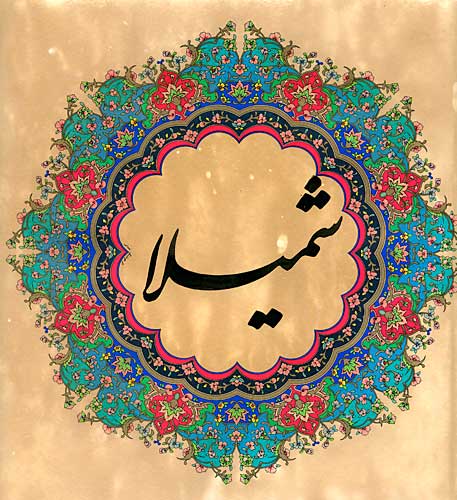 شمیلا